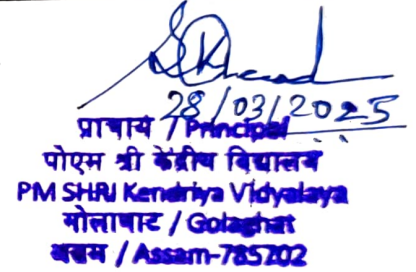 28/03/2025
प्राचार्य / Principal
पोएम श्री केंद्रीय विद्यालय
PM SHRI Kendriya Vidyalaya
गोलाघाट / Golaghat
असम / Assam-785702